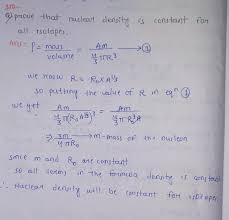 Q) prove that nuclear density is constant for
all isotopes.
Ans:- ρ = mass / volume = Am / 4/3 πR³ → ①
we know R = R₀ × A^1/3
so putting the value of R in eqⁿ ①
we get
Am / 4/3 π(R₀A^1/3)³ = Am / 4/3 πR₀³A
⇒ 3m / 4πR₀ → m - mass of the nucleon
since m and R₀ are constant
so all terms in the formula density is constant
∴ Nuclear density will be constant for isotopes